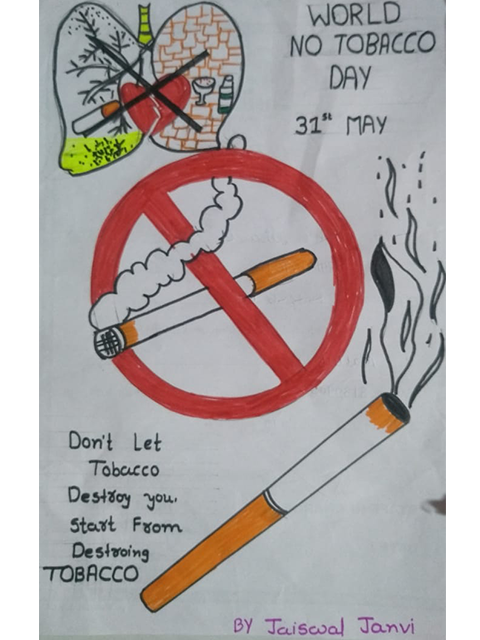 WORLD
NO TOBACCO
DAY
31st MAY
Don't Let
Tobacco
Destroy you.
Start From
Destroing
TOBACCO
BY Jaiswal Janvi